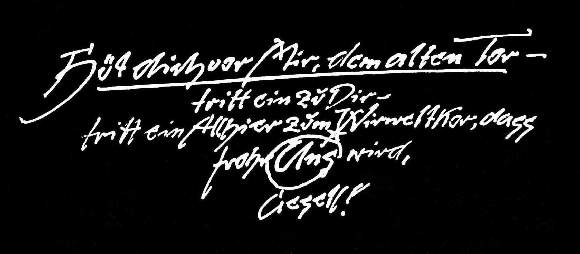 Hüt dich vor Mir, dem alten Tor –
tritt ein zu Dir –
tritt ein Allhier zum Wirweltkor, dass
froh Uns wird,
Gesell!